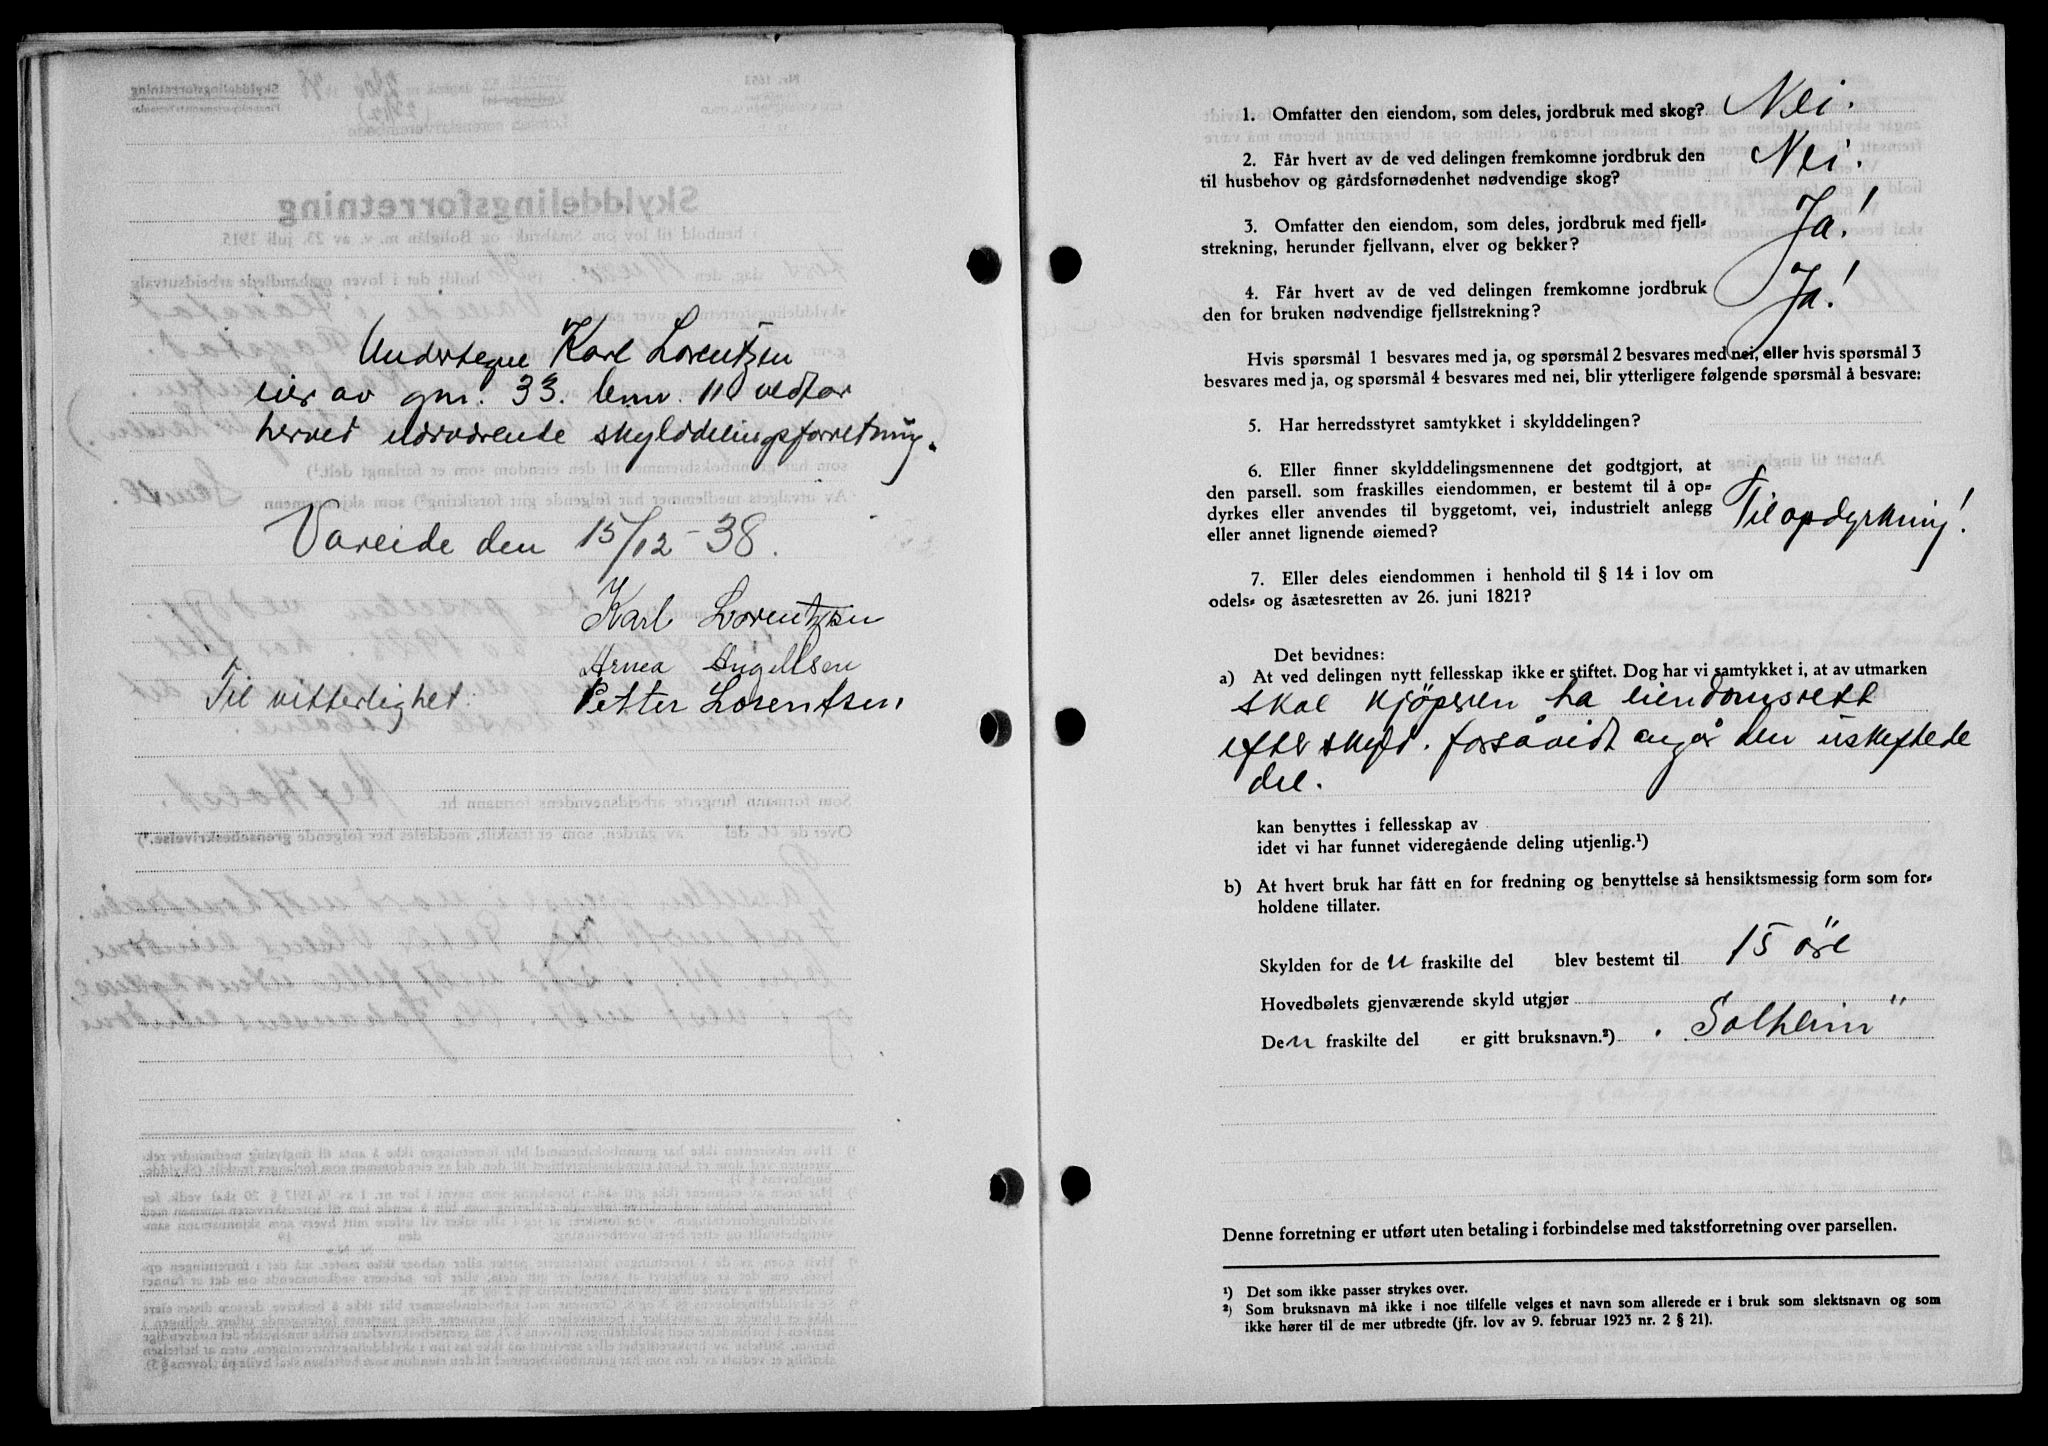 Undertegne Karl Lorentzen
eier av gnr. 33. bnr. 11 vedtar
herved nærværende skylddelingsforretning.
Vareide den 15/12-38.
Karl Lorentzen
Arnea Angellsen
Til vitterlighet: Petter Lorentsen
1. Omfatter den eiendom, som deles, jordbruk med skog? Nei.
2. Får hvert av de ved delingen fremkomne jordbruk den
til husbehov og gårdsfornødenhet nødvendige skog? Nei.
3. Omfatter den eiendom, som deles, jordbruk med fjell-
strekning, herunder fjellvann, elver og bekker? Ja!
4. Får hvert av de ved delingen fremkomne jordbruk
den for bruken nødvendige fjellstrekning? Ja!
Hvis spørsmål 1 besvares med ja, og spørsmål 2 besvares med nei, eller hvis spørsmål 3
besvares med ja, og spørsmål 4 besvares med nei, blir ytterligere følgende spørsmål å besvare:
5. Har herredsstyret samtykket i skylddelingen?
6. Eller finner skylddelingsmennene det godtgjort, at
den parsell. som fraskilles eiendommen, er bestemt til å op-
dyrkes eller anvendes til byggetomt, vei, industrielt anlegg
eller annet lignende øiemed? Til opdyrkning!
7. Eller deles eiendommen i henhold til § 14 i lov om
odels- og åsætesretten av 26. juni 1821?
Det bevidnes:
a) At ved delingen nytt fellesskap ikke er stiftet. Dog har vi samtykket i, at av utmarken
skal kjöperen ha eiendomsrett
efter skyld. forsåvidt angår den uskiftede
del.
kan benyttes i fellesskap av
idet vi har funnet videregående deling utjenlig.¹)
b) At hvert bruk har fått en for fredning og benyttelse så hensiktsmessig form som for-
holdene tillater.
Skylden for de n fraskilte del blev bestemt til 15 öre
Hovedbølets gjenværende skyld utgjør
De n fraskilte del er gitt bruksnavn.²) "Solheim"
Denne forretning er utført uten betaling i forbindelse med takstforretning over parsellen.
¹) Det som ikke passer strykes over.
²) Som bruksnavn må ikke i noe tilfelle velges et navn som allerede er i bruk som slektsnavn og som
ikke hører til de mer utbredte (jfr. lov av 9. februar 1923 nr. 2 § 21).